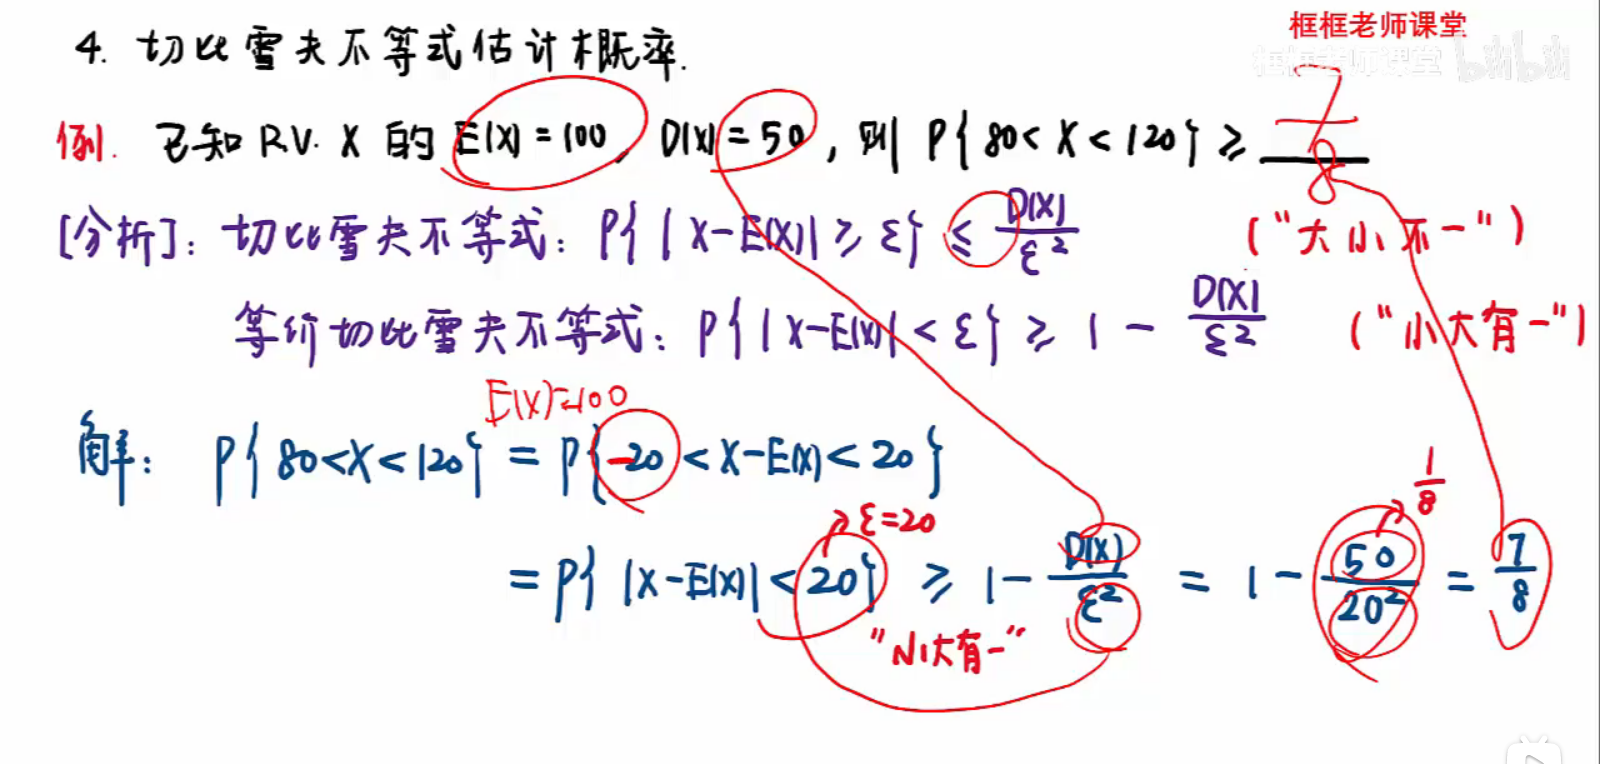 框框老师课堂
框框老师课堂 bilibili
4. 切比雪夫不等式估计概率.
例. 已知 R.V. X 的 E(X) = 100, D(X) = 50, 则 P{80 < X < 120} ≥ 7/8
[分析]: 切比雪夫不等式: P{|X-E(X)| ≥ ε} ≤ D(X)/ε² ("大小不一")
等价切比雪夫不等式: P{|X-E(X)| < ε} ≥ 1 - D(X)/ε² ("小大有一")
E(X)=100
解: P{80<X<120} = P{-20 < X-E(X) < 20}
ε=20
1/8
= P{|X-E(X)| < 20} ≥ 1 - D(X)/ε² = 1 - 50/20² = 7/8
"小大有一"